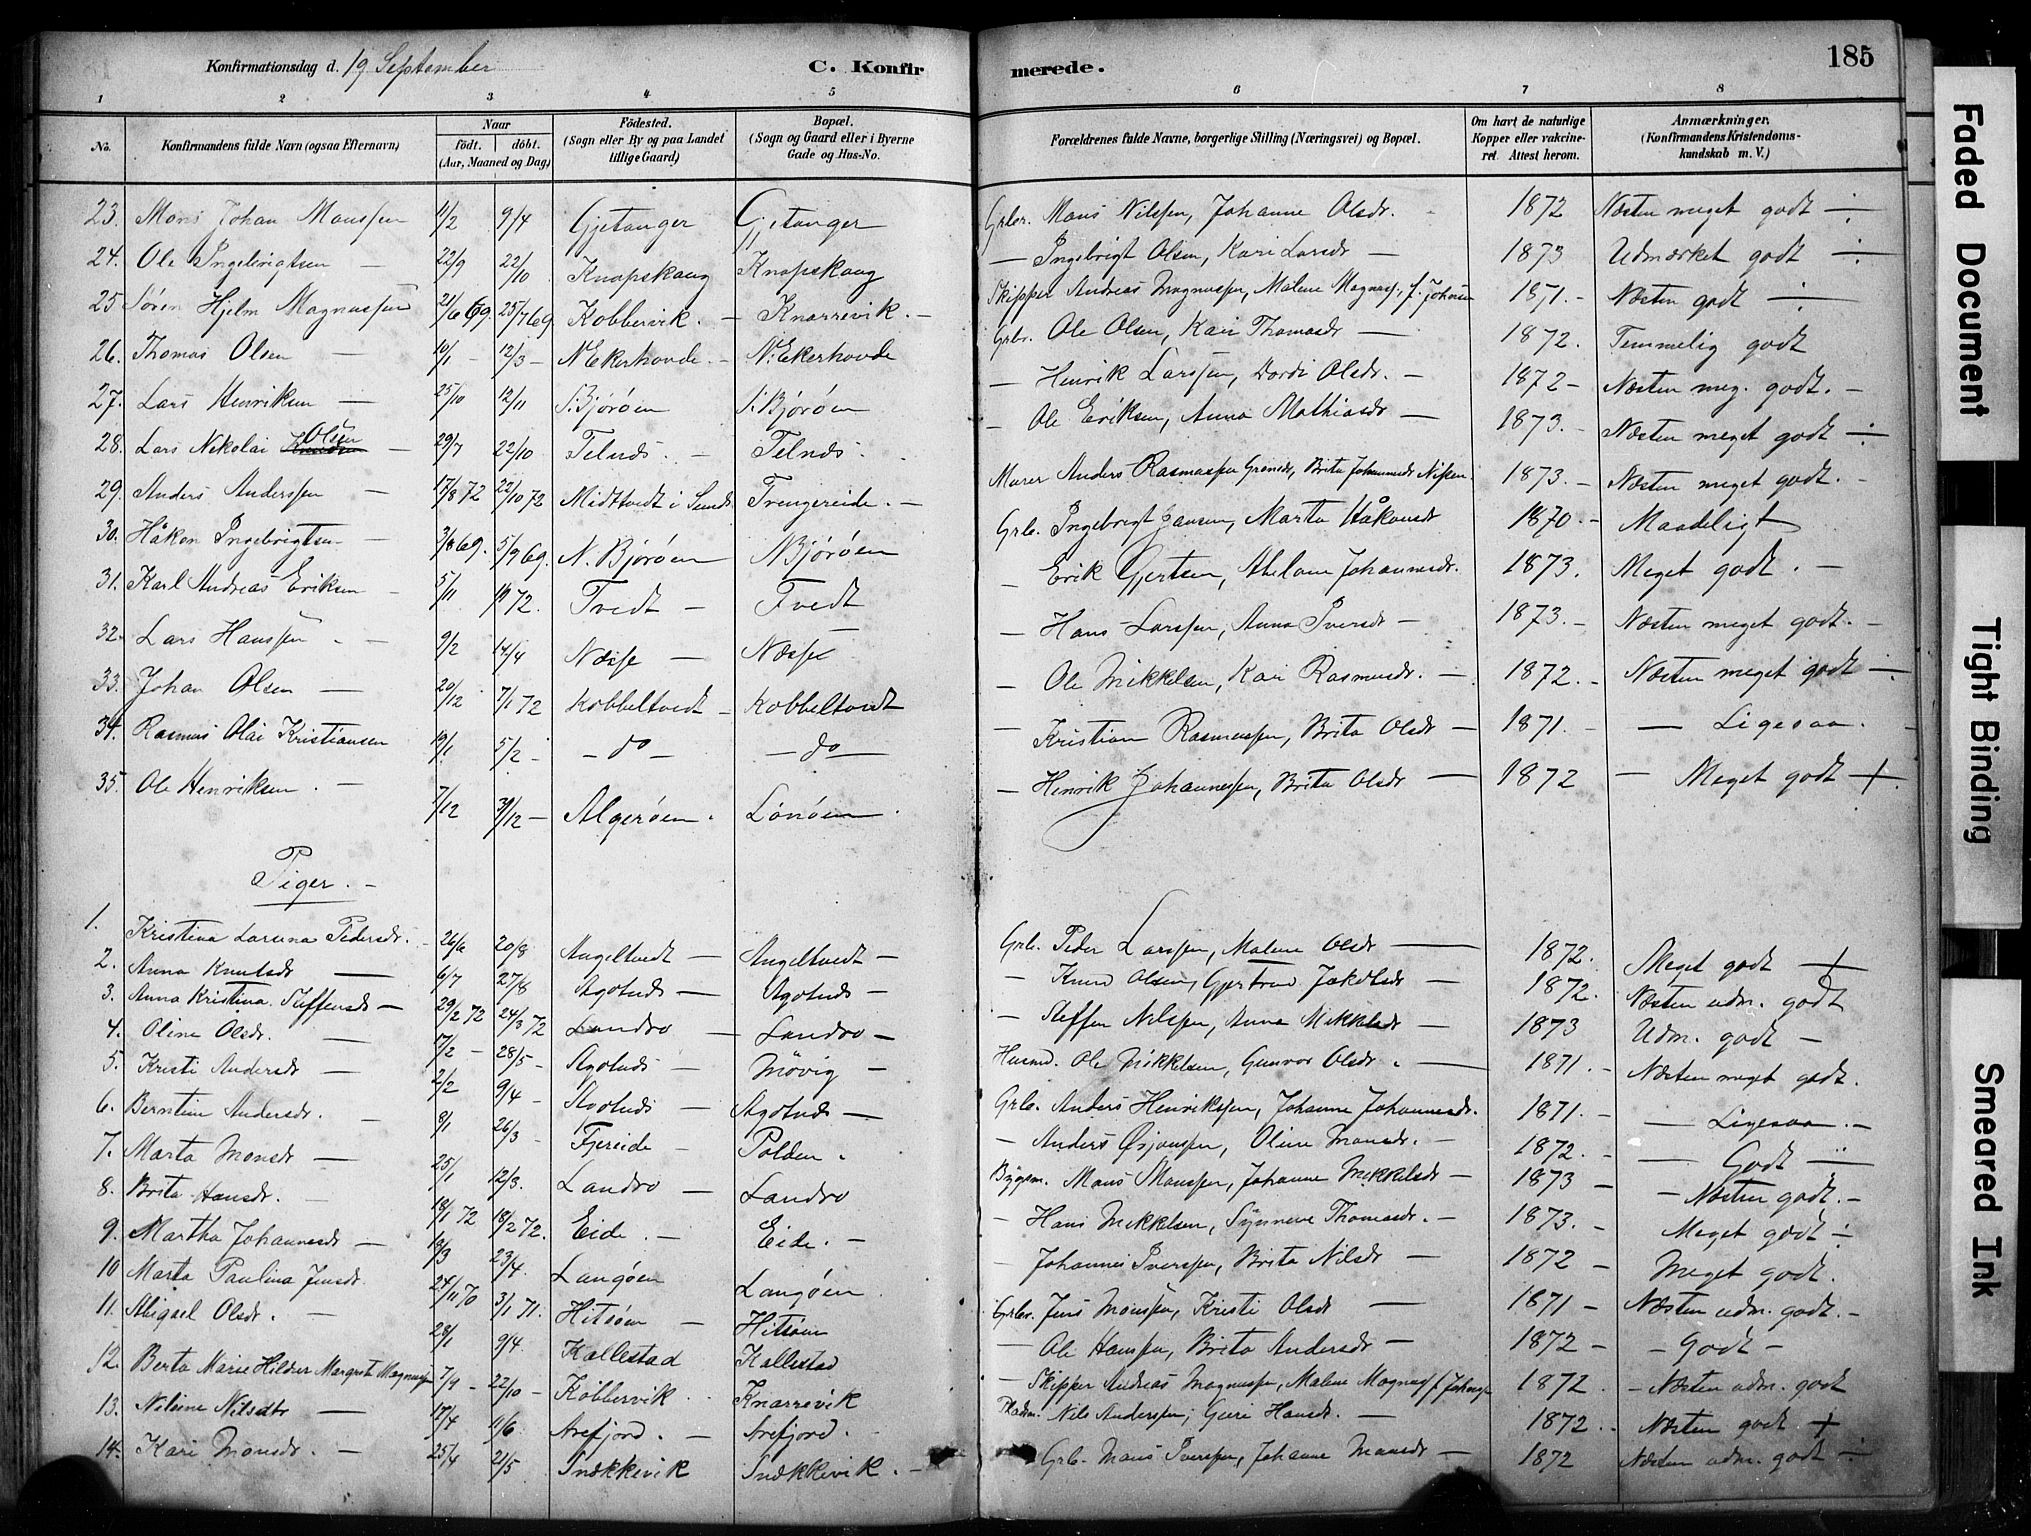 Konfirmationsdag d. 19 September C. Konfirmerede. 185
1 2 3 4 5 6 7 8
No. Konfirmandens fulde Navn (ogsaa Efternavn) Naar født. døbt. (Aar, Maaned og Dag) Fødested. (Sogn eller By og paa Landet tillige Gaard) Bopæl. (Sogn og Gaard eller i Byerne Gade og Hus-No. Forældrenes fulde Navne, borgerlige Stilling (Næringsvei) og Bopæl. Om havt de naturlige Kopper eller vakcineret. Attest herom. Anmærkninger. (Konfirmandens Kristendomskundskab m. V.)
23. Mons Johan Monssen 11/2 9/4 Gjetanger Gjetanger Grbr. Mons Nilssen, Johanne Olsdr. 1872 Næsten meget godt ÷
24. Ole Ingebrigtsen — 22/9 22/10 Knapskaug Knapskaug — Ingebrigt Olsen, Kari Larsdr — 1873 Udmærket godt ÷
25 Søren Hjelm Magnussen 21/6 69. 25/7 69. Kobbervik. — Knarrevik. — Skipper Andreas Magnussen, Malene Magnuss. f. Johnsen 1871. — Næsten godt ÷
26. Thomas Olsen — 10/1 — 12/3 — N. Ekerhovde. — N. Ekerhovde Grbr. Ole Olsen, Kari Thomasdr — 1872. Temmelig godt
27. Lars Henriksen — 25/10 12/11 S. Bjørøen S. Bjørøen — Henrik Larssen, Dordi Olsdr. — 1872 — Næsten meg. godt. —
28. Lars Nikolai Olsen — 29/7 22/10 Telnæs. — Telnæs. — Ole Eriksen, Anna Mathiasdr — 1873. — Næsten meget godt ÷
29. Anders Anderssen — 17/8 72 22/10 72 Midttvedt i Sund Trengereide. — Murer Anders Rasmussen, Brita Johannesdr 1873. — Næsten meget godt. —
30. Håkon Ingebrigtsen — 3/8 69. 5/9 69. N. Bjørøen N Bjørøen Grb. Ingebrigt Hansen, Marta Håkonsdr 1870. — Maadeligt
31. Karl Andreas Eriksen — 5/11 72. Tvedt — Tvedt — Erik Gjertsen, Abelone Johannesdr. 1873. Meget godt. —
32. Lars Hanssen — 9/2 14/4 Næsse — Næsse — Hans Larssen, Anna Iversdr — 1873. — Næsten meget godt. —
33. Johan Olsen — 20/12 7/1 72 Kobbeltvedt — Kobbeltvedt — Ole Mikkelsen, Kari Rasmusdr. — 1872. — Næsten meget godt ÷
34. Rasmus Olai Kristiansen 19/1 5/2 — do — — do — — Kristian Rasmussen, Brita Olsdr — 1871. — — Ligesaa. —
35. Ole Henriksen. — 7/12 31/12 — Algerøen. Lønøen — Henrik Johannessen, Brita Olsdr — 1872 — Meget godt +
Piger. —
1. Kristina Larina Pedersdr. — 26/6 20/8 Angeltvedt — Angeltvedt — Grb. Peder Larssen, Malene Olsdr — 1872. Meget godt +
2. Anna Knutsdr — 6/7 27/8 Agotnæs — Agotnæs — — Knud Olsen, Gjertrud Jakobsdr — 1872. Næsten udm. godt
3. Anna Kristina Steffensdr — 29/2 72 24/3 72 Landro — Landro — — Steffen Nilssen, Anna Mikkelsdr — 1873 Udm. godt —
4. Oline Olsdr. — 17/2 — 28/5 — Agotnæs — Møvig — Husmd. Ole Mikkelsen, Gunvor Olsdr. — 1871. — Næsten meget godt.
5. Kristi Andersdr — 2/2 9/4 — Agotnæs — Agotnæs — Grb. Anders Henrikssen, Johanne Johannesdr. 1871. — — Ligesaa. —
6. Berntine Andersdr. — 8/1 26/3 — Fjereide — Polden. — Anders Ørjanssen, Oline Monsdr. — 1872. — — Godt —
7. Marta Monsdr — 25/1 12/3. Landro — Landro Bygsm. Mons Monssen, Johanne Mikkelsdr — 1873 — — Næsten godt. —
8. Brita Hansdr. — 18/1 72 18/2 72. Eide. — Eide. — — Hans Mikkelsen, Synneve Thomasdr. — 1873. — Meget godt ÷
9. Martha Johannesdr — 18/3 23/4. Langøen Langøen — Johannes Iverssen, Brita Nilsdr — 1872 — Meget godt.
10 Marta Paulina Jensdr. 24/11 70 3/1 71. Hitsøen — Hitsøen Grbr. Jens Monssen, Kristi Olsdr — 1871 — Næsten udm. godt. —
11. Abigael Olsdr. — 28/1 9/4 Kallestad Kallestad — Ole Hanssen, Brita Andersdr — 1872 — — Godt —
12. Berta Marie Hildur Margreta Magnuss. 7/9 — 22/10 — Kobbervik. Knarrevik — Skipper Andreas Magnussen, Malene Magnuss. f. Johnsen 1872. — Næsten udm. godt
13. Nilsine Nilsdtr — 17/4 11/6 Arefjord. — Arefjord. Nils Anderssen, Guri Hansdr. — 1872. — Næsten godt +
14. Kari Monsdr. — 25/4 21/5 Snekkevik Snekkevik. — Grb. Mons Iverssen, Johanne Monsdr — 1872 Næsten udm. godt ÷
Faded Document
Tight Binding
Smeared Ink